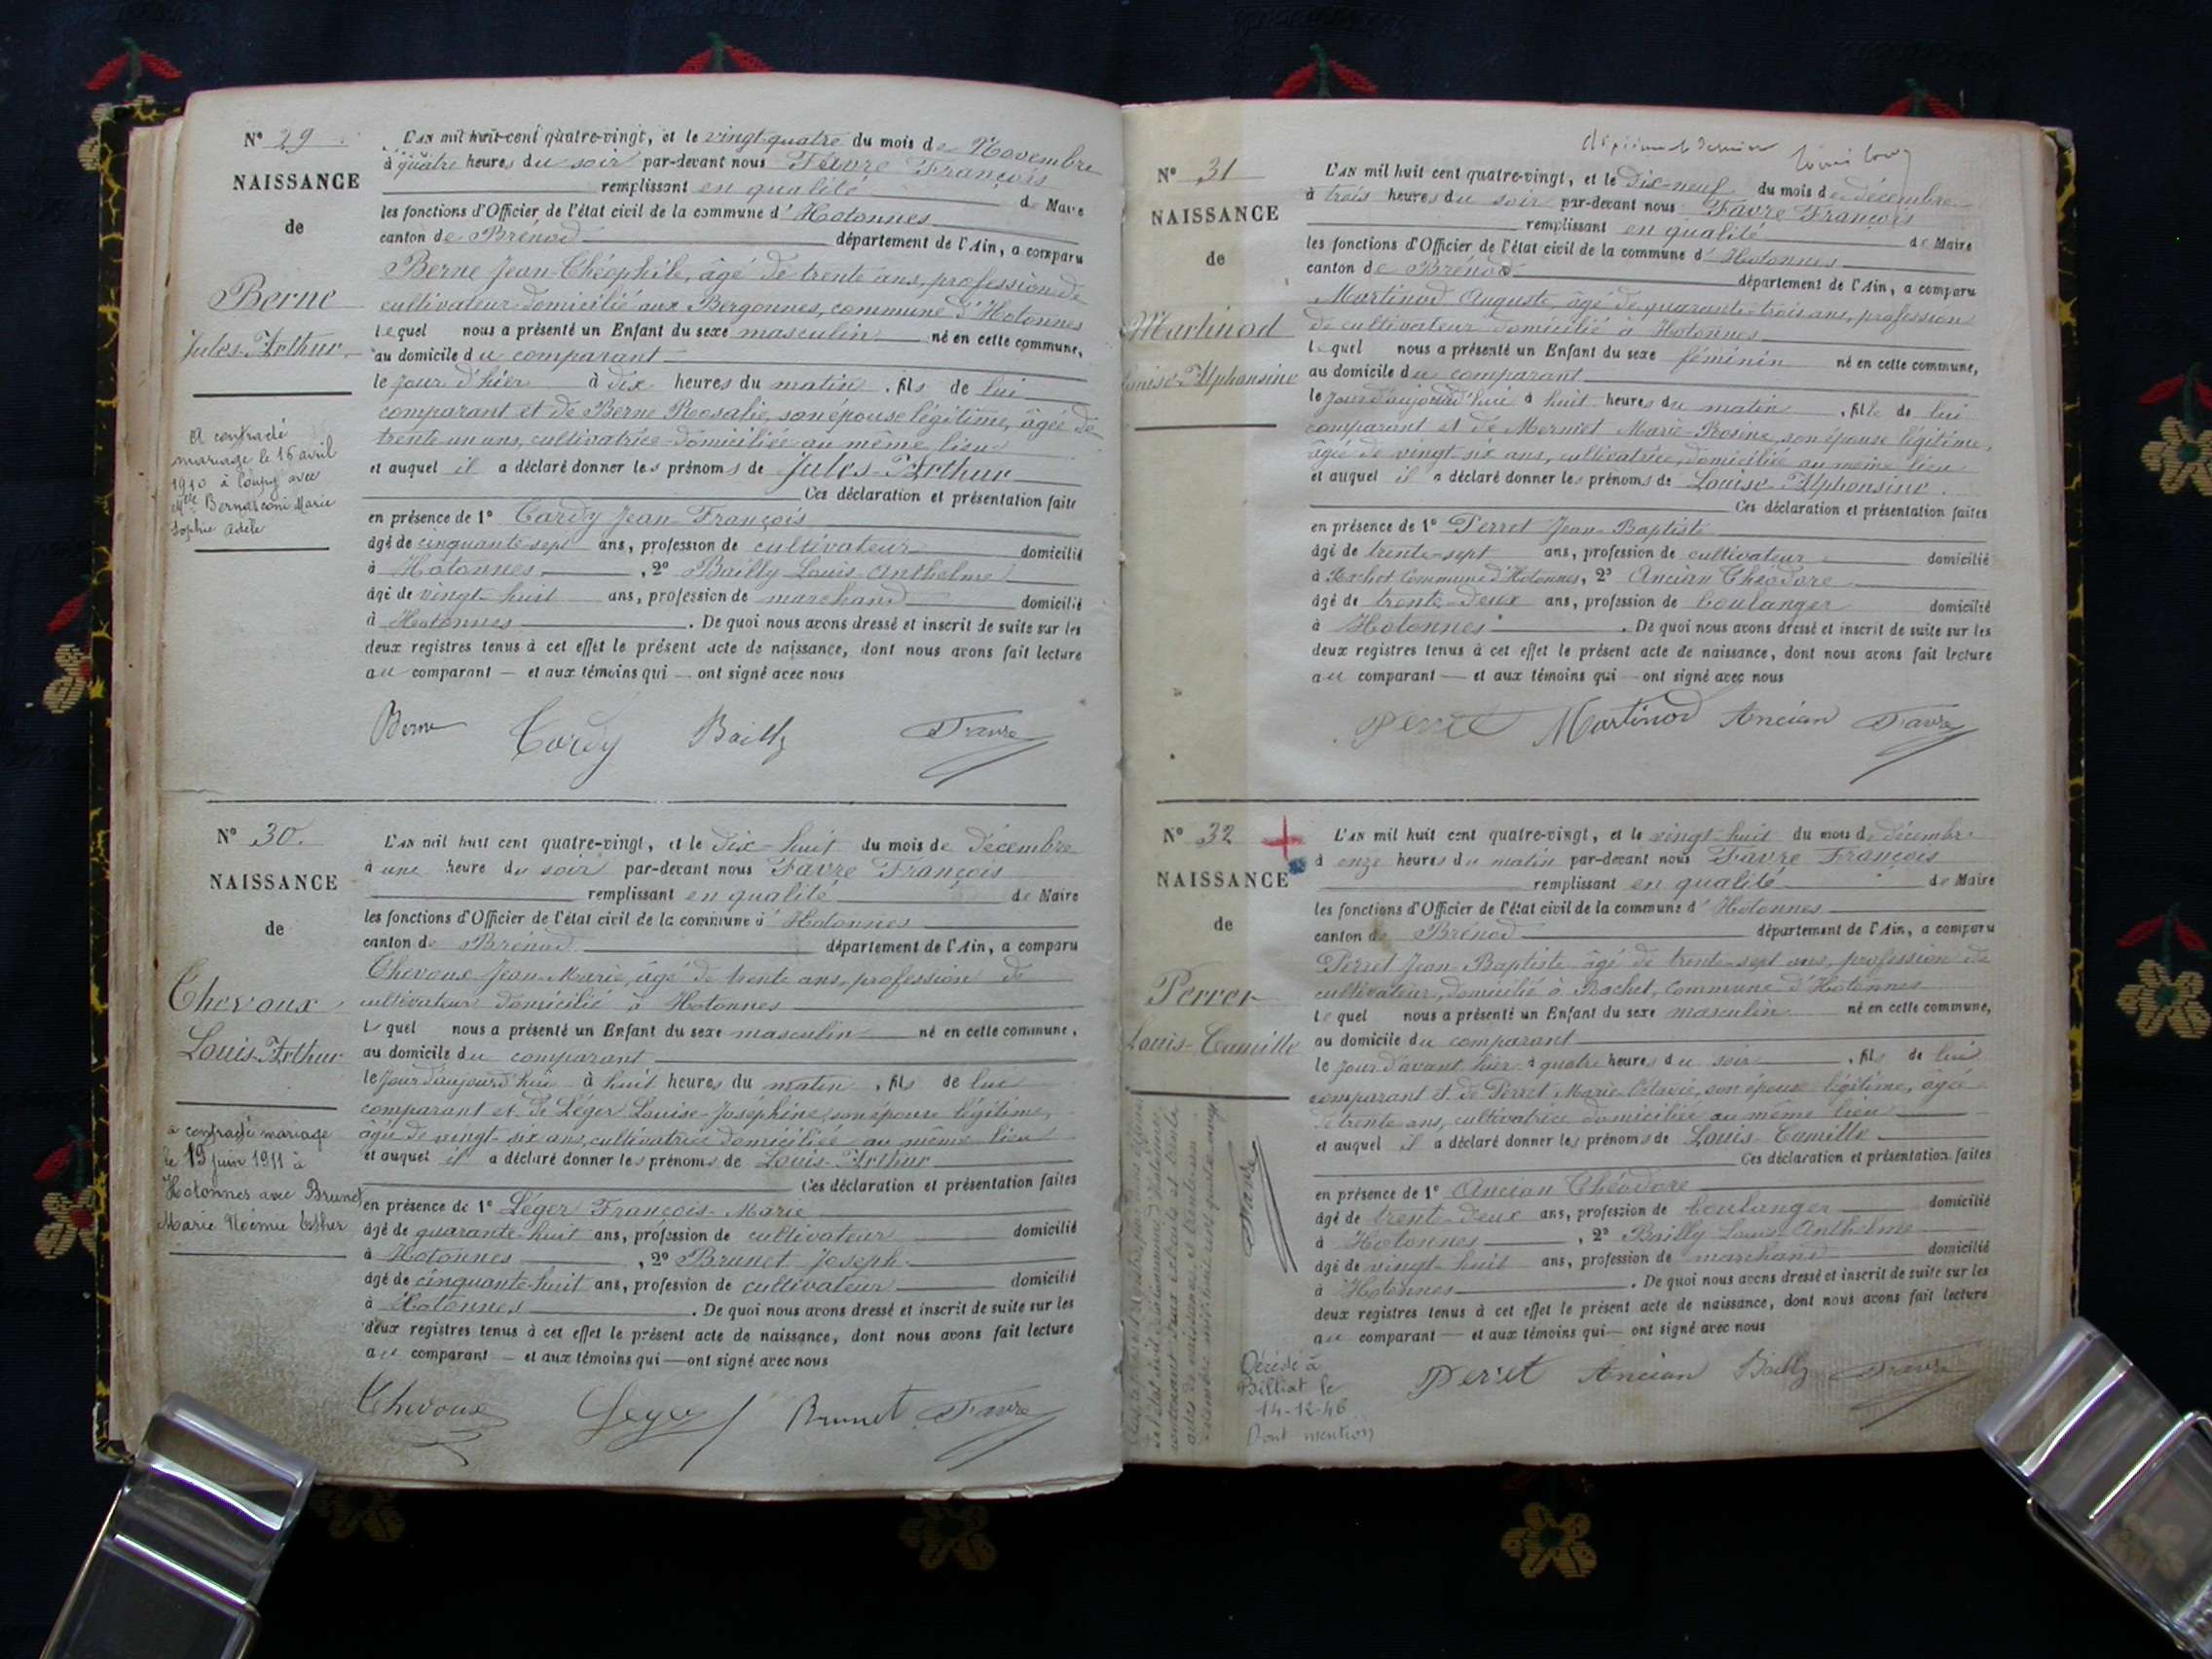 N° 29
NAISSANCE
de
Berne
Jules-Arthur
A contracté
mariage le 16 avril
1910 à avec
Mlle Bernasconi Marie
Sophie Adèle
L'AN mil huit cent quatre-vingt, et le vingt-quatre du mois de Novembre
à quatre heures du soir par-devant nous Favre François
remplissant en qualité de Maire
les fonctions d'Officier de l'état civil de la commune d'Hotonnes
canton de Brénod département de l'Ain, a comparu
Berne Jean-Théophile, âgé de trente ans, profession de
cultivateur domicilié aux Bergonnes, commune d'Hotonnes
lequel nous a présenté un Enfant du sexe masculin né en cette commune,
au domicile du comparant
le jour d'hier à dix heures du matin, fils de lui
comparant et de Berne Rosalie, son épouse légitime, âgée de
trente-un ans, cultivatrice domiciliée au même lieu
et auquel il a déclaré donner les prénoms de Jules-Arthur
Ces déclaration et présentation faite
en présence de 1° Cardy Jean-François
âgé de cinquante-sept ans, profession de cultivateur domicilié
à Hotonnes, 2° Bailly Louis-Anthelme
âgé de vingt-huit ans, profession de marchand domicilié
à Hotonnes. De quoi nous avons dressé et inscrit de suite sur les
deux registres tenus à cet effet le présent acte de naissance, dont nous avons fait lecture
au comparant — et aux témoins qui — ont signé avec nous
Berne Cardy Bailly Favre
N° 30.
NAISSANCE
de
Chevaux
Louis-Arthur
a contracté mariage
le 19 juin 1911 à
Hotonnes avec Brunet
Marie Noémie Esther
L'AN mil huit cent quatre-vingt, et le dix-huit du mois de Décembre
à une heure du soir par-devant nous Favre François
remplissant en qualité de Maire
les fonctions d'Officier de l'état civil de la commune d'Hotonnes
canton de Brénod département de l'Ain, a comparu
Chevaux Jean-Marie, âgé de trente ans, profession de
cultivateur domicilié à Hotonnes
lequel nous a présenté un Enfant du sexe masculin né en cette commune,
au domicile du comparant
le jour d'aujourd'hui à huit heures du matin, fils de lui
comparant et de Léger Louise-Joséphine, son épouse légitime,
âgée de vingt-six ans, cultivatrice domiciliée au même lieu
et auquel il a déclaré donner les prénoms de Louis-Arthur
Ces déclaration et présentation faites
en présence de 1° Léger François-Marie
âgé de quarante-huit ans, profession de cultivateur domicilié
à Hotonnes, 2° Brunet Joseph
âgé de cinquante-huit ans, profession de cultivateur domicilié
à Hotonnes. De quoi nous avons dressé et inscrit de suite sur les
deux registres tenus à cet effet le présent acte de naissance, dont nous avons fait lecture
au comparant — et aux témoins qui — ont signé avec nous
Chevaux Leger Brunet Favre
N° 31
NAISSANCE
de
Martinod
Louise-Alphonsine
L'AN mil huit cent quatre-vingt, et le dix-neuf du mois de décembre
à trois heures du soir par-devant nous Favre François
remplissant en qualité de Maire
les fonctions d'Officier de l'état civil de la commune d'Hotonnes
canton de Brénod département de l'Ain, a comparu
Martinod Auguste, âgé de quarante-trois ans, profession
de cultivateur domicilié à Hotonnes
lequel nous a présenté un Enfant du sexe féminin né en cette commune,
au domicile du comparant
le jour d'aujourd'hui à huit heures du matin, fille de lui
comparant et de Mermet Marie-Rosine, son épouse légitime,
âgée de vingt-six ans, cultivatrice, domiciliée au même lieu
et auquel il a déclaré donner les prénoms de Louise-Alphonsine.
Ces déclaration et présentation faites
en présence de 1° Perret Jean-Baptiste
âgé de trente-sept ans, profession de cultivateur domicilié
à commune d'Hotonnes, 2° Ancian Théodore
âgé de trente-deux ans, profession de boulanger domicilié
à Hotonnes. De quoi nous avons dressé et inscrit de suite sur les
deux registres tenus à cet effet le présent acte de naissance, dont nous avons fait lecture
au comparant — et aux témoins qui — ont signé avec nous
Perret Martinod Ancian Favre
N° 32
NAISSANCE
de
Perret
Louis-Camille
Favre
Décédé à
Billiat le
14-12-46
Dont mention
L'AN mil huit cent quatre-vingt, et le vingt-huit du mois de décembre
à onze heures du matin par-devant nous Favre François
remplissant en qualité de Maire
les fonctions d'Officier de l'état civil de la commune d'Hotonnes
canton de Brénod département de l'Ain, a comparu
Perret Jean-Baptiste âgé de trente-sept ans, profession de
cultivateur, domicilié à Rachet, commune d'Hotonnes
lequel nous a présenté un Enfant du sexe masculin né en cette commune,
au domicile du comparant
le jour d'avant hier à quatre heures du soir, fils de lui
comparant et de Perret Marie-Octavie, son épouse légitime, âgée
de trente ans, cultivatrice domiciliée au même lieu
et auquel il a déclaré donner les prénoms de Louis-Camille
Ces déclaration et présentation faites
en présence de 1° Ancian Théodore
âgé de trente-deux ans, profession de boulanger domicilié
à Hotonnes, 2° Bailly Louis-Anthelme
âgé de vingt-huit ans, profession de marchand domicilié
à Hotonnes. De quoi nous avons dressé et inscrit de suite sur les
deux registres tenus à cet effet le présent acte de naissance, dont nous avons fait lecture
au comparant — et aux témoins qui — ont signé avec nous
Perret Ancian Bailly Favre